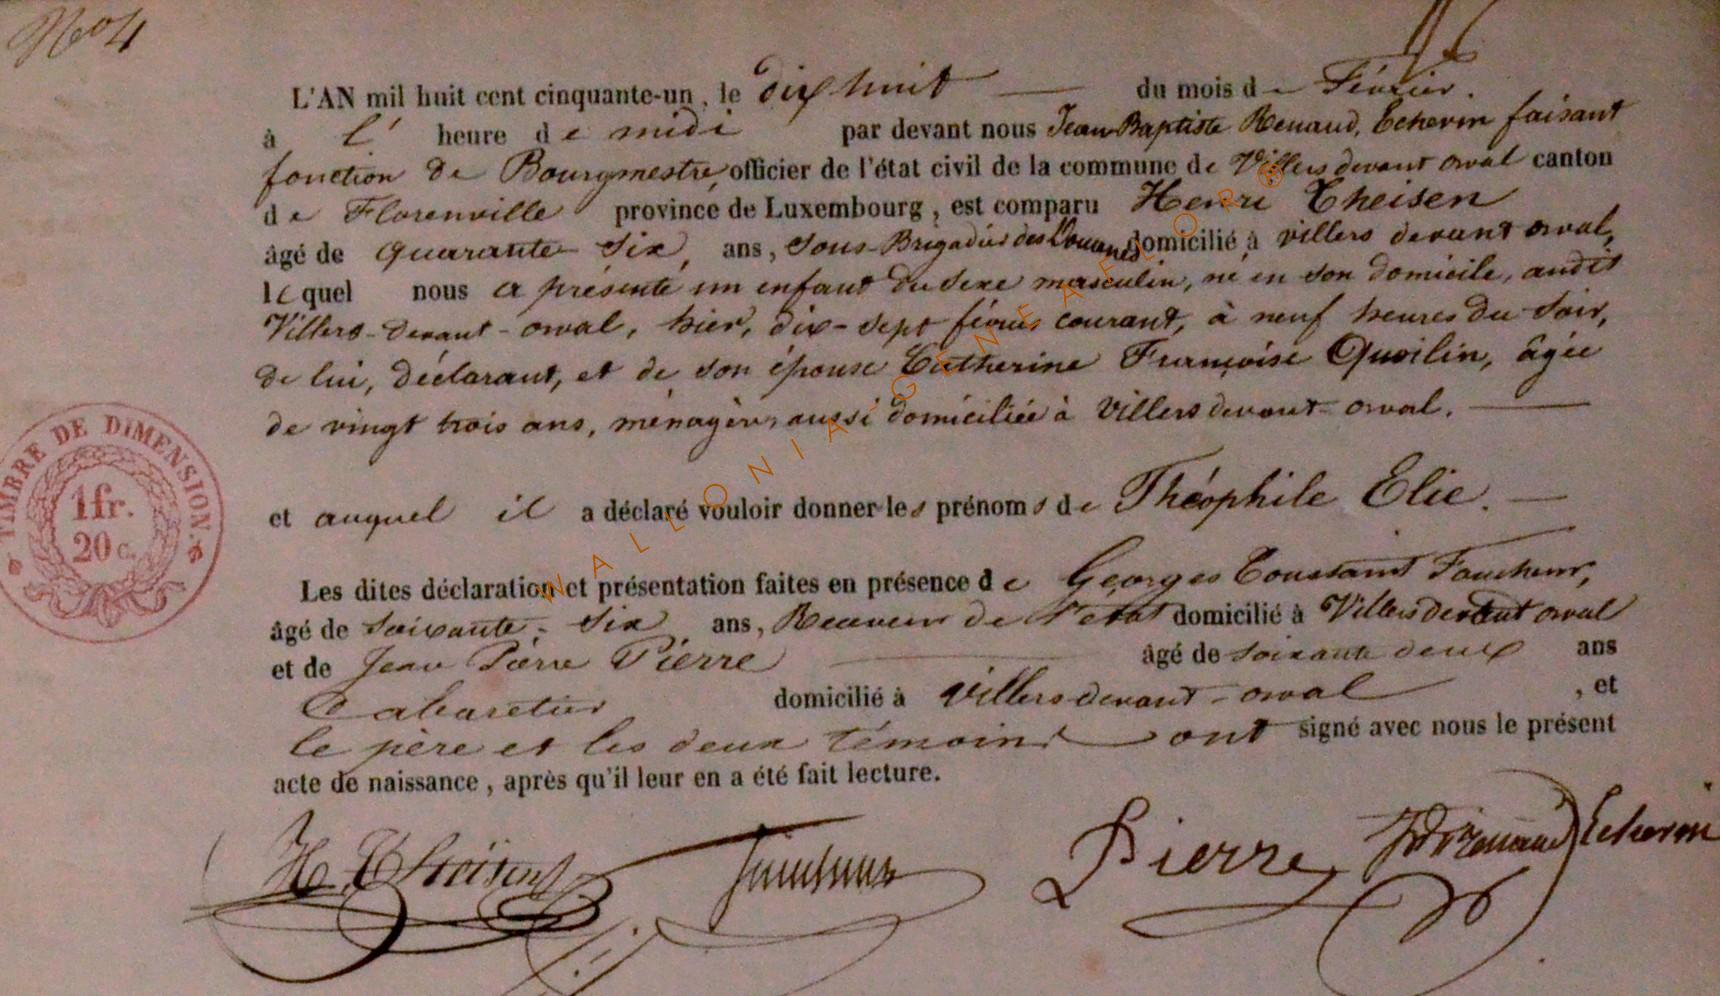 N° 4
L'AN mil huit cent cinquante-un, le dix huit du mois de Février.
à l' heure de midi par devant nous Jean Baptiste Renaud, Echevin faisant
fonction de Bourgmestre, officier de l'état civil de la commune de Villers devant orval canton
de Florenville province de Luxembourg, est comparu Henri Theisen
âgé de quarante six, ans, sous-Brigadier des Douanes domicilié à villers devant orval,
lequel nous a présenté un enfant du sexe masculin, né en son domicile, audit
Villers-devant-orval, hier, dix-sept février courant, à neuf heures du soir,
de lui, déclarant, et de son épouse Catherine Françoise Quoilin, âgée
de vingt trois ans, ménagère, aussi domiciliée à Villers devant-orval.
et auquel il a déclaré vouloir donner les prénoms de Théophile Elie.
TIMBRE DE DIMENSION.
1 fr.
20 c.
Les dites déclaration et présentation faites en présence de Georges Toussaint
âgé de soixante-six ans, Receveur de l'état domicilié à Villers devant orval
et de Jean Pierre Pierre âgé de soixante deux ans
Cabaretier domicilié à Villers devant-orval, et
le père et les deux témoins ont signé avec nous le présent
acte de naissance, après qu'il leur en a été fait lecture.
H Theisen Pierre JB Renaud Echevin
WALLONIA-GENEAFLOR®